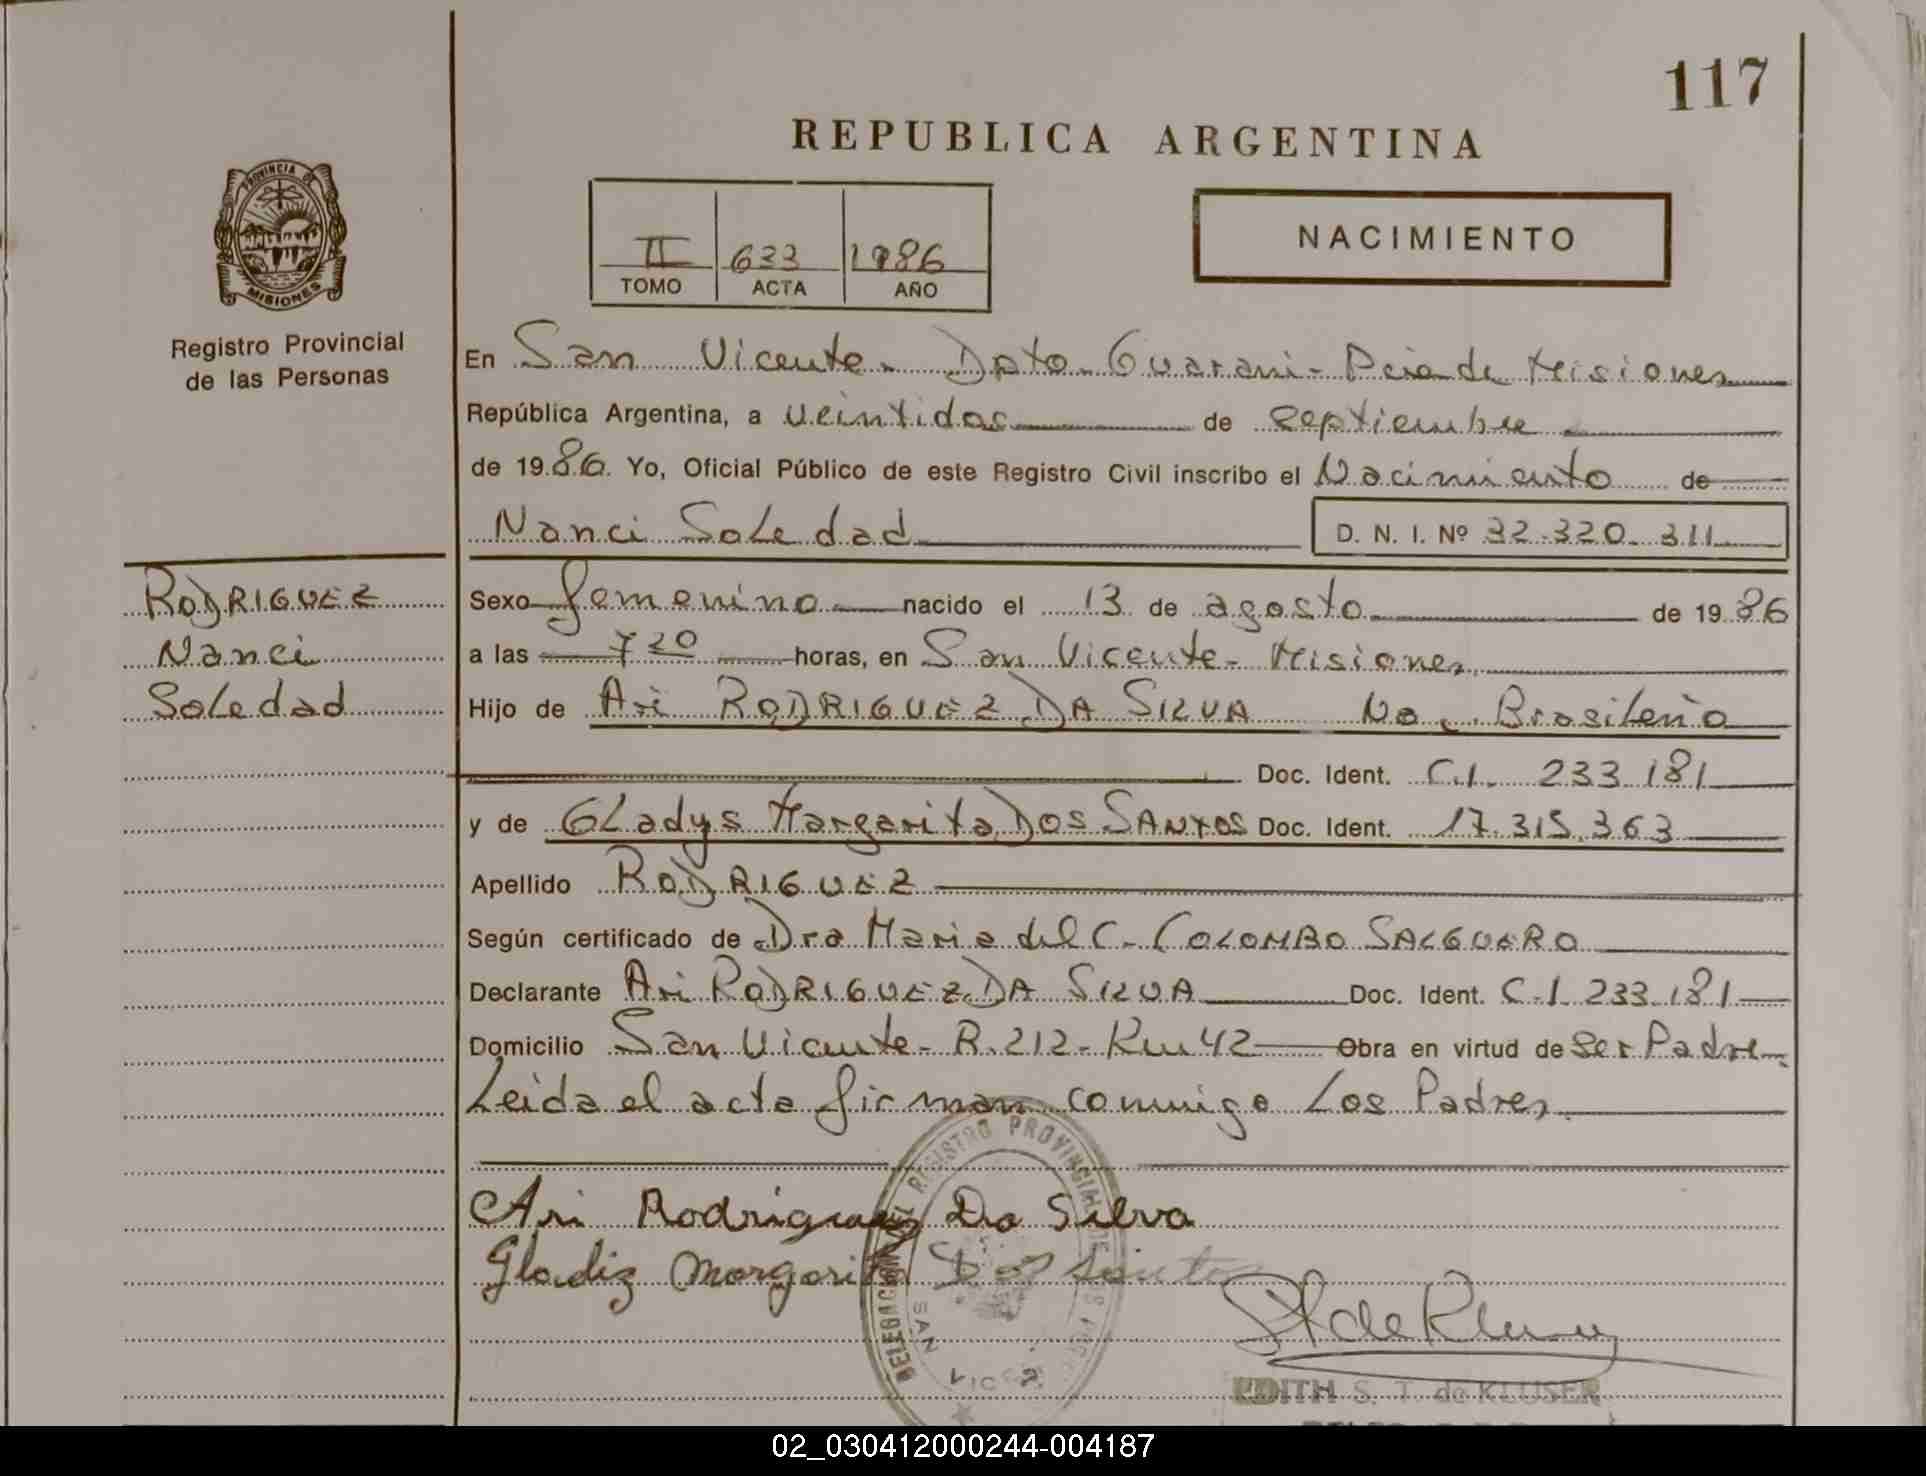 117
REPUBLICA ARGENTINA
PROVINCIA DE
MISIONES
II 633 1986
TOMO ACTA AÑO
NACIMIENTO
Registro Provincial
de las Personas
En San Vicente - Dpto. Guarani - Pcia de Misiones
República Argentina, a veintidos de septiembre
de 1986. Yo, Oficial Público de este Registro Civil inscribo el Nacimiento de
Nanci Soledad D. N. I. Nº 32.320.311
RODRIGUEZ
Nanci
Soledad
Sexo femenino nacido el 13 de agosto de 1986
a las 7 20 horas, en San Vicente - Misiones
Hijo de Ari RODRIGUEZ DA SILVA Na. Brasileña
Doc. Ident. C.I. 233.181
y de GLadys Margarita DOS SANTOS Doc. Ident. 17.315.363
Apellido RODRIGUEZ
Según certificado de Dra Maria del C. COLOMBO SALGUERO
Declarante Ari RODRIGUEZ DA SILVA Doc. Ident. C.I. 233.181
Domicilio San Vicente - R. 212 - Km 42 Obra en virtud de Ser Padre
Leida el acta firman conmigo Los Padres.
Ari Rodriguez Da Silva
Gladiz Margarita Dos Santos
DELEGACION DEL REGISTRO PROVINCIAL DE LAS
SAN VICE
EDITH S. T. de KLUSER
02_030412000244-004187